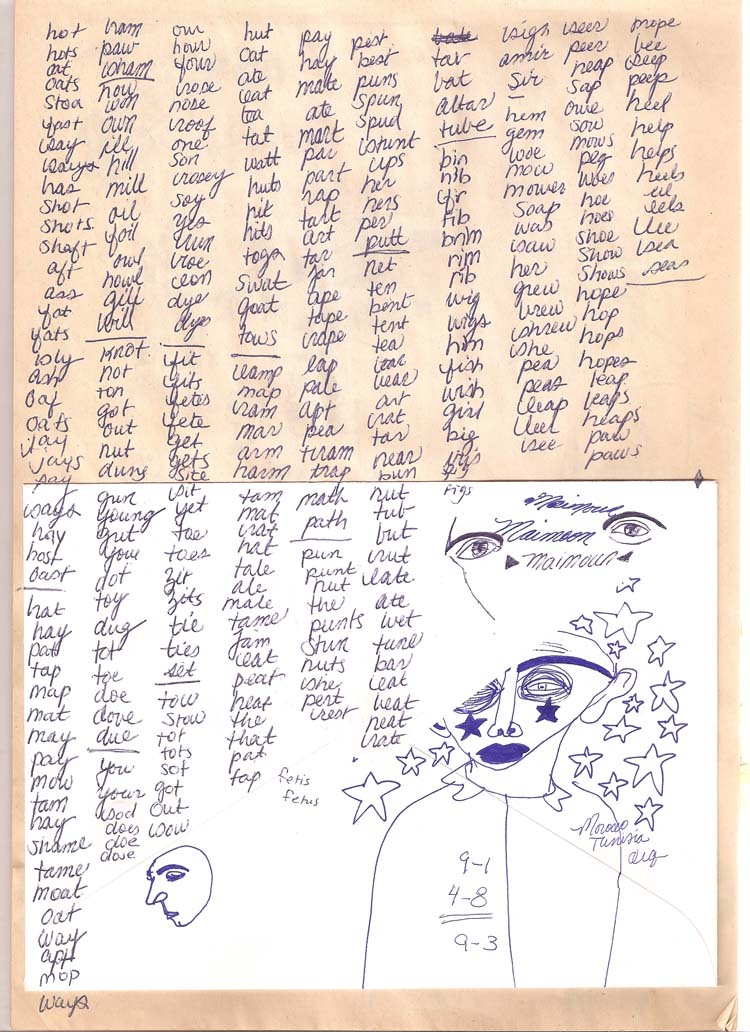 hot
hots
oat
oats
stoa
fast
way
ways
has
shot
shots
shaft
aft
ass
fat
fats
sly
ash
oaf
oats
jay
jays
say
ways
hay
host
oast
hat
hay
pat
tap
map
mat
may
pay
mow
tam
hay
shame
tame
moat
oat
way
apt
mop
ways
ham
paw
wham
now
won
own
ill
hill
mill
oil
foil
owl
howl
gill
will
knot
not
ton
got
out
nut
dung
gun
young
gut
you
dot
toy
dug
tot
toe
doe
dove
due
you
your
sod
does
doe
dove
our
hour
your
rose
nose
roof
one
son
rosey
soy
yes
run
roe
eon
dye
dyes
fit
fits
fetes
fete
get
gets
site
sit
yet
toe
toes
zit
zits
tie
ties
set
tow
stow
tot
tots
sot
got
out
wow
hut
oat
ate
eat
tea
tat
watt
huts
hit
hits
toga
swat
goat
tows
lamp
map
ram
mar
arm
harm
tam
mat
rat
hat
tale
ale
male
tame
jam
eat
peat
heap
the
that
pat
tap
fetis
fetus
pay
hay
mate
ate
mart
par
part
rap
tart
art
tar
jar
ape
tape
rape
lap
pale
apt
pea
tram
trap
math
path
pun
punt
nut
the
punts
stun
nuts
she
pert
rest
pest
best
puns
spun
spud
stunt
ups
her
hers
per
putt
net
ten
bent
tent
tea
ear
near
art
rat
tar
near
bun
nut
tub
but
rut
late
ate
wet
tune
bar
eat
heat
neat
rate
tar
bat
altar
tube
bin
nib
fir
fib
brim
rim
rib
wig
wigs
him
fish
wish
girl
big
figs
sigh
amir
sir
hem
gem
woe
mow
mower
soap
was
saw
her
grew
crew
shrew
she
pea
peas
leap
leer
see
seer
peer
neap
sap
owe
sow
mows
peg
woes
hoe
hoes
shoe
show
shows
hope
hop
hops
hopes
leap
leaps
heaps
paw
paws
mope
bee
seep
peep
heel
help
helps
heels
eel
eels
lee
sea
seas
Maimoun
Maimoon
Maimoun
Morocco
Tunisia
9-1
4-8
9-3